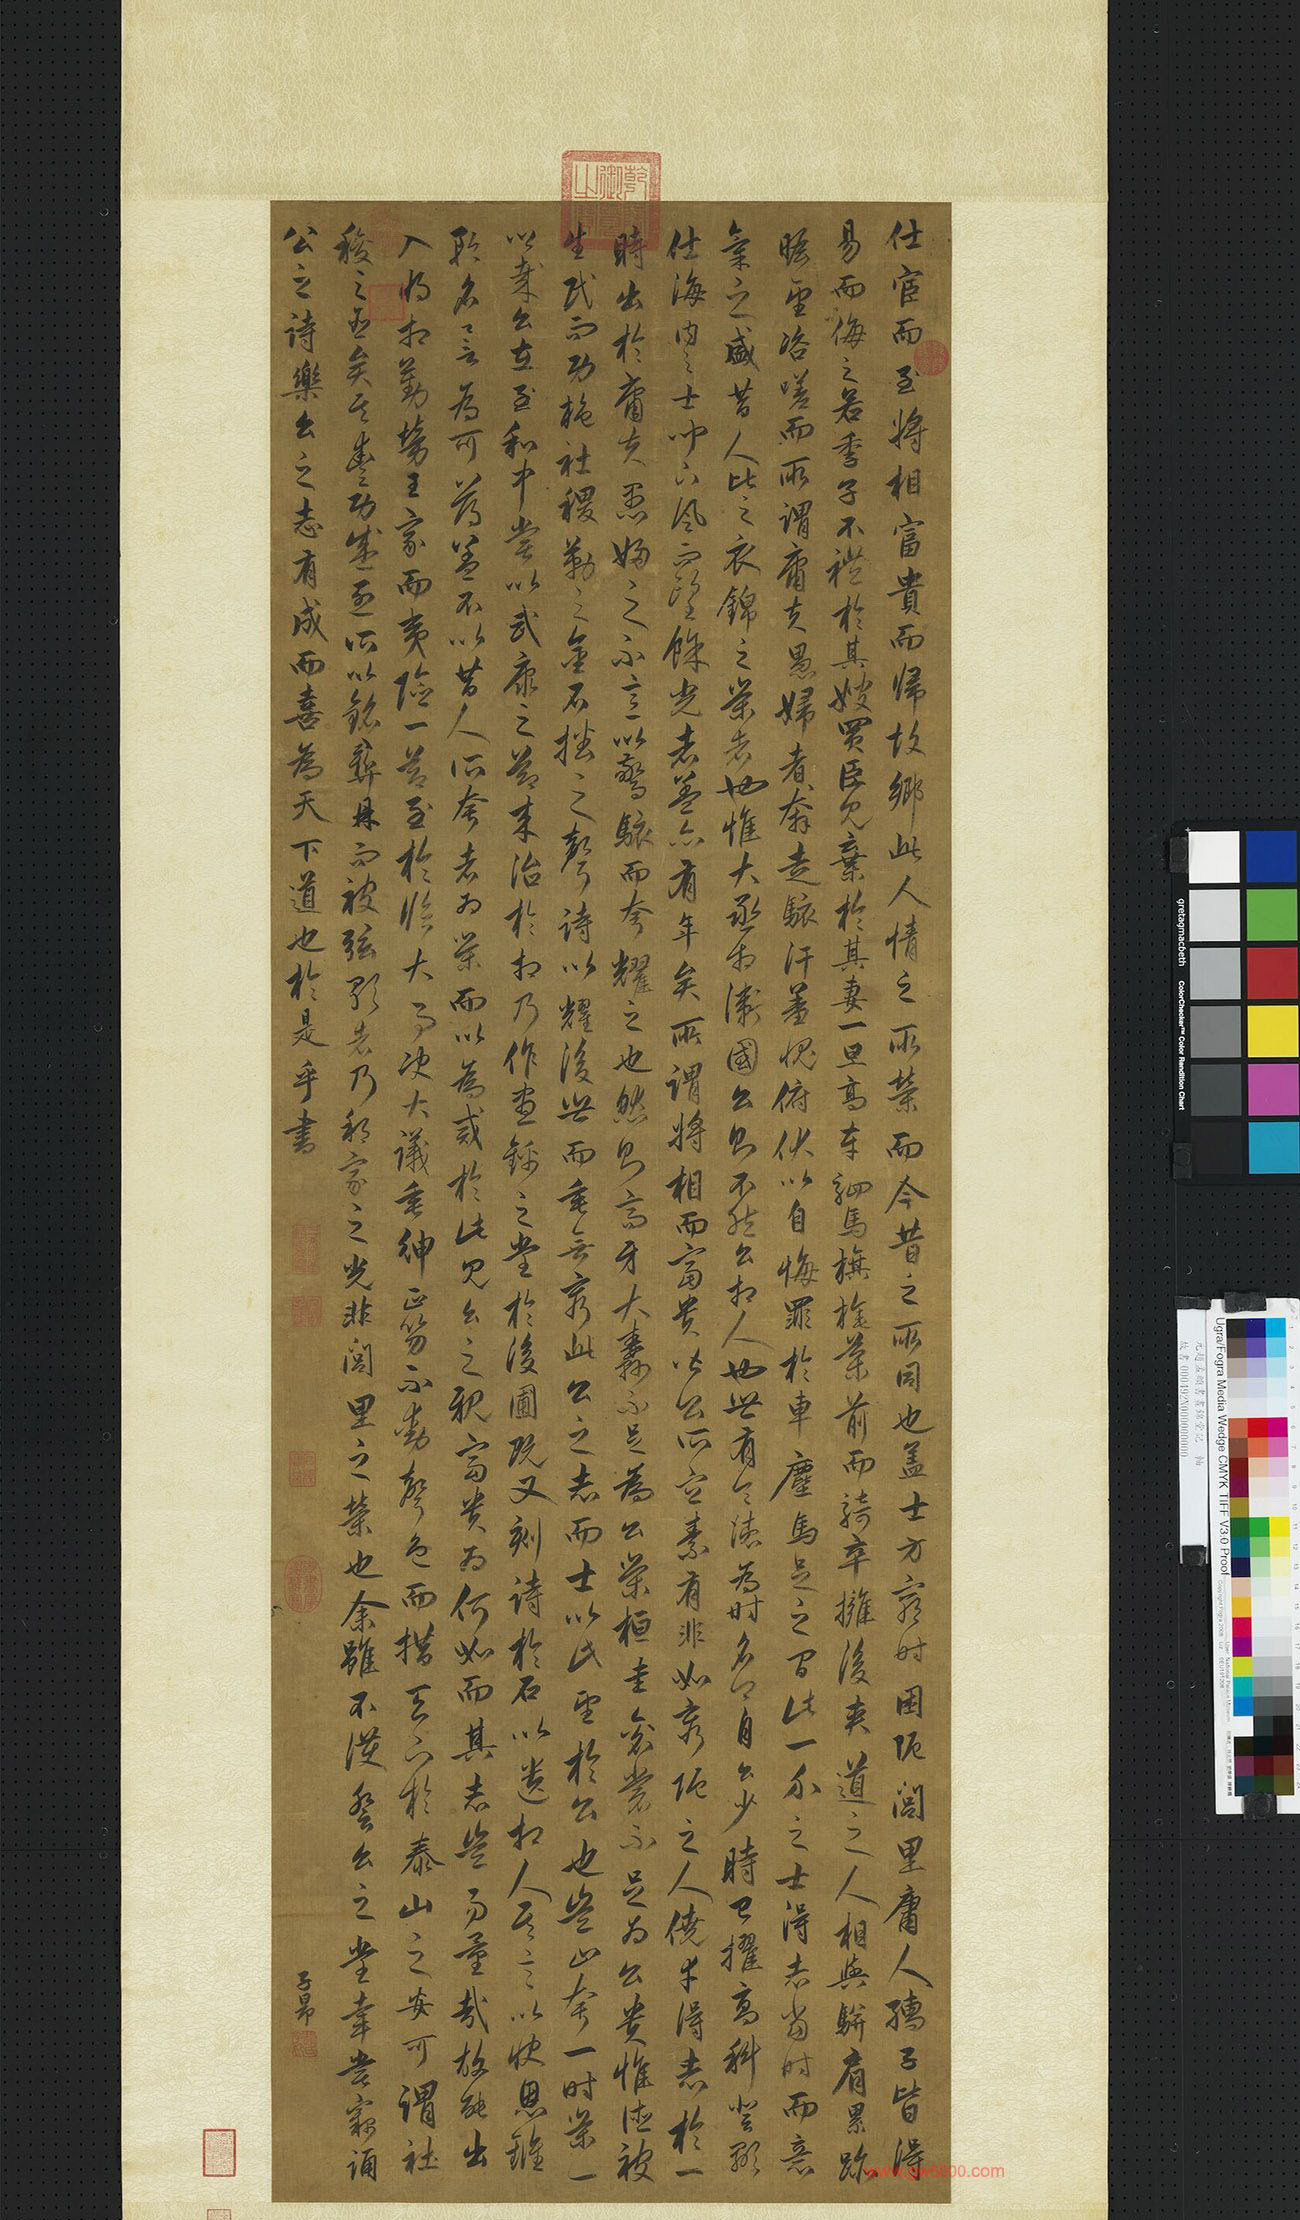 仕宦而至將相富貴而歸故鄉此人情之所榮而今昔之所同也蓋士方窮時困阨閭里庸人孺子皆得
易而侮之若季子不禮於其嫂買臣見棄於其妻一旦高車駟馬旗旄導前而騎卒擁後夾道之人相與駢肩累跡
瞻望咨嗟而所謂庸夫愚婦者奔走駭汗羞愧俯伏以自悔罪於車塵馬足之間此一介之士得志當時而意
氣之盛昔人比之衣錦之榮者也惟大丞相衛國公則不然公相人也世有令德為時名卿自公少時已擢高科登顯
仕海內之士聞下風而望餘光者蓋亦有年矣所謂將相而富貴皆公所宜素有非如窮阨之人僥幸得志於一
時出於庸夫愚婦之不意以驚駭而夸耀之也然則高牙大纛不足為公榮桓圭袞裳不足為公貴惟德被
生民而功施社稷勒之金石播之聲詩以耀後世而垂無窮此公之志而士以此望於公也豈止夸一時榮一
鄉哉公在至和中嘗以武康之節來治於相乃作晝錦之堂於後圃既又刻詩於石以遺相人其言以快恩讎
矜名譽為可薄蓋不以昔人所夸者為榮而以為戒於此見公之視富貴為何如而其志豈易量哉故能出
入將相勤勞王家而夷險一節至於臨大事決大議垂紳正笏不動聲色而措天下於泰山之安可謂社
稷之臣矣其豐功盛烈所以銘彝鼎而被弦歌者乃邦家之光非閭里之榮也余雖不獲登公之堂幸嘗竊誦
公之詩樂公之志有成而喜為天下道也於是乎書
子昂
gretagmacbeth ColorChecker™ Color Rendition Chart
Ugra/Fogra Media Wedge CMYK TIFF V3.0 Proof